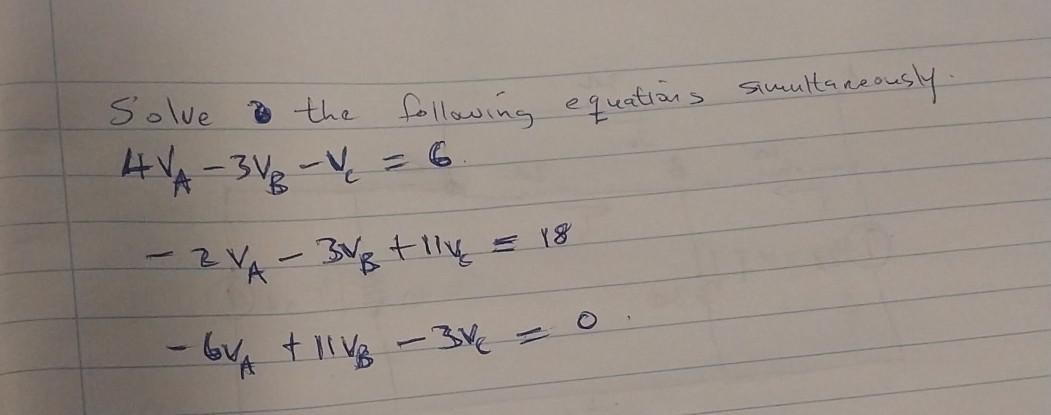 Solve the following equations simultaneously.
4V_A - 3V_B - V_C = 6.
- 2V_A - 3V_B + 11V_C = 18
- 6V_A + 11V_B - 3V_C = 0.